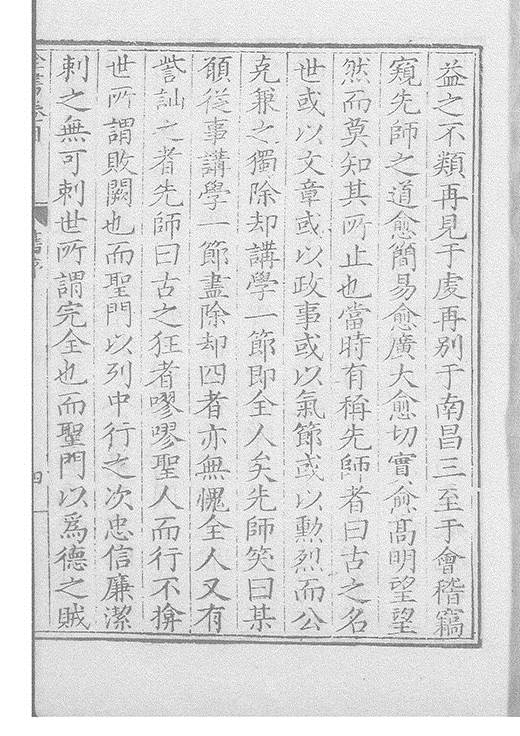 益之不類再見于虔再別于南昌三至于會稽竊
窺先師之道愈簡易愈廣大愈切實愈髙明望望
然而莫知其所止也當時有稱先師者曰古之名
世或以文章或以政事或以氣節或以勲烈而公
克兼之獨除却講學一節即全人矣先師笑曰某
願從事講學一節盡除却四者亦無愧全人又有
訾訕之者先師曰古之狂者嘐嘐聖人而行不揜
世所謂敗闕也而聖門以列中行之次忠信廉潔
刺之無可刺世所謂完全也而聖門以爲德之賊
四